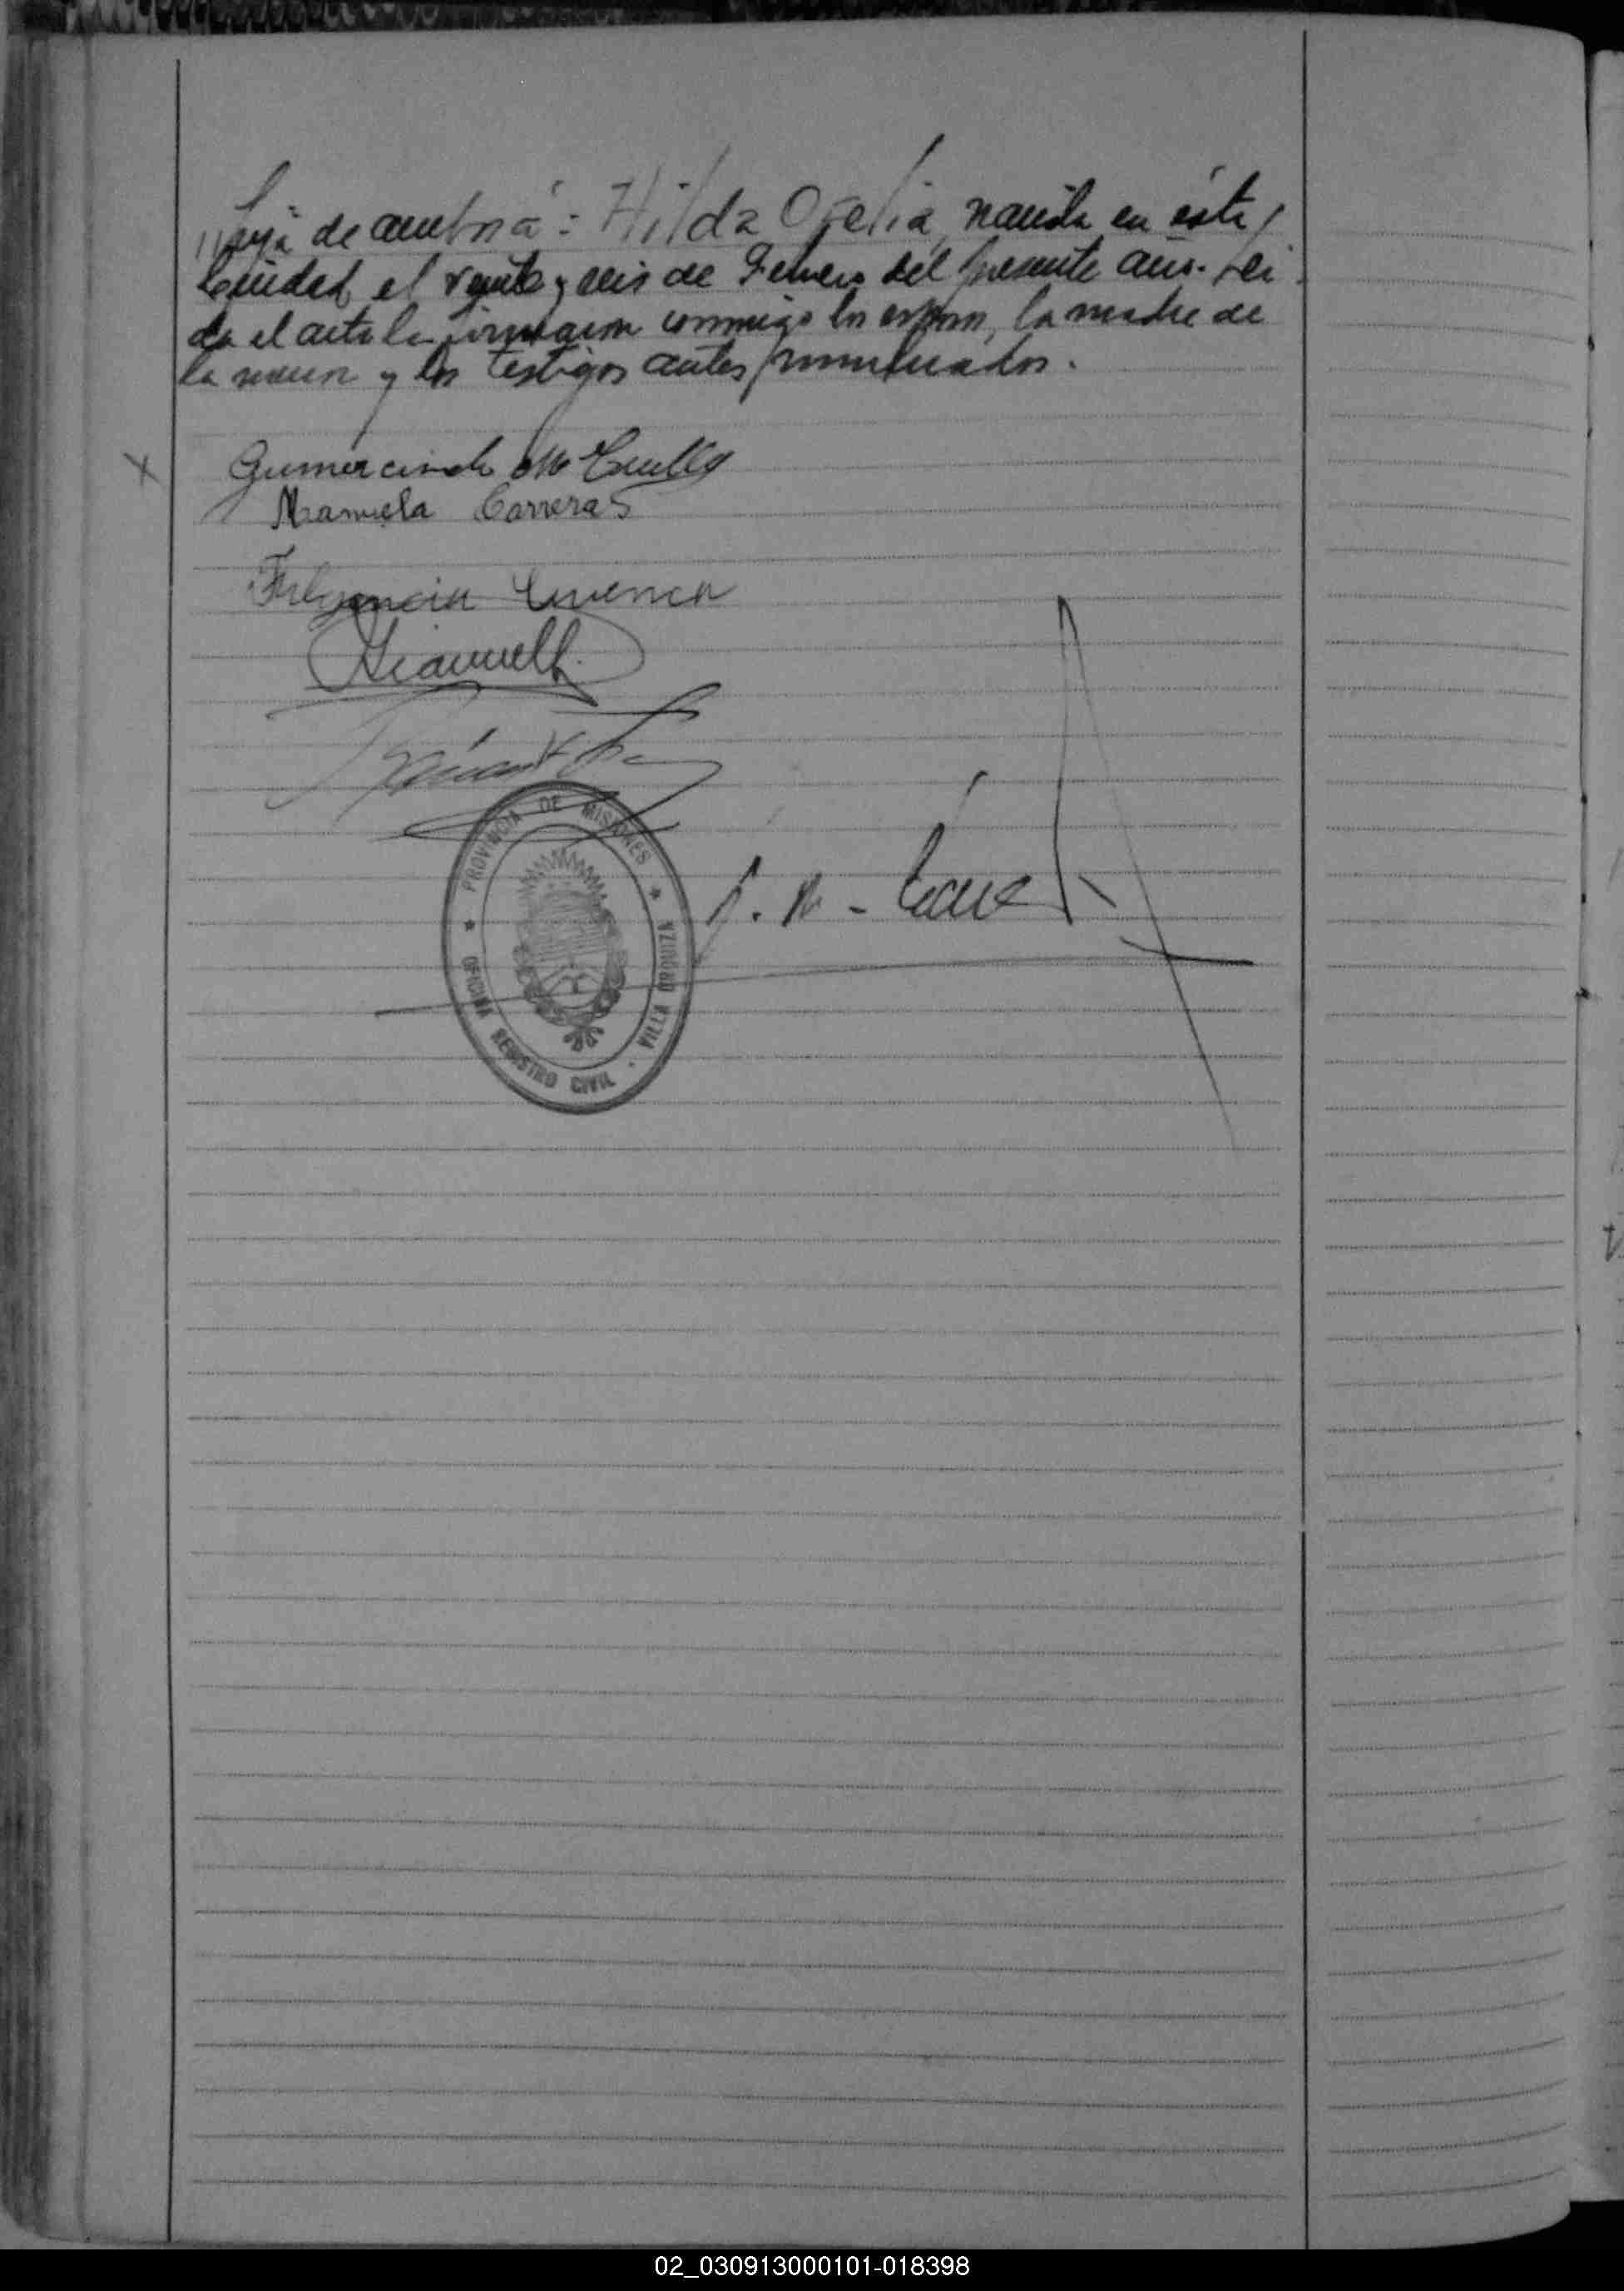 //hija de ambos: Hilda Ofelia, nacida en ésta/
Ciudad, el veinte y seis de Febrero del presente año. Lei
da el acta la firmaron conmigo los esposos, la madre de
la novia y los testigos antes nombrados.
X
Gumercindo M Cuello
Manuela Carreras
Fulgencia Cuenca
PROVINCIA DE MISIONES
OFICINA REGISTRO CIVIL - VILLA URQUIZA
02_030913000101-018398